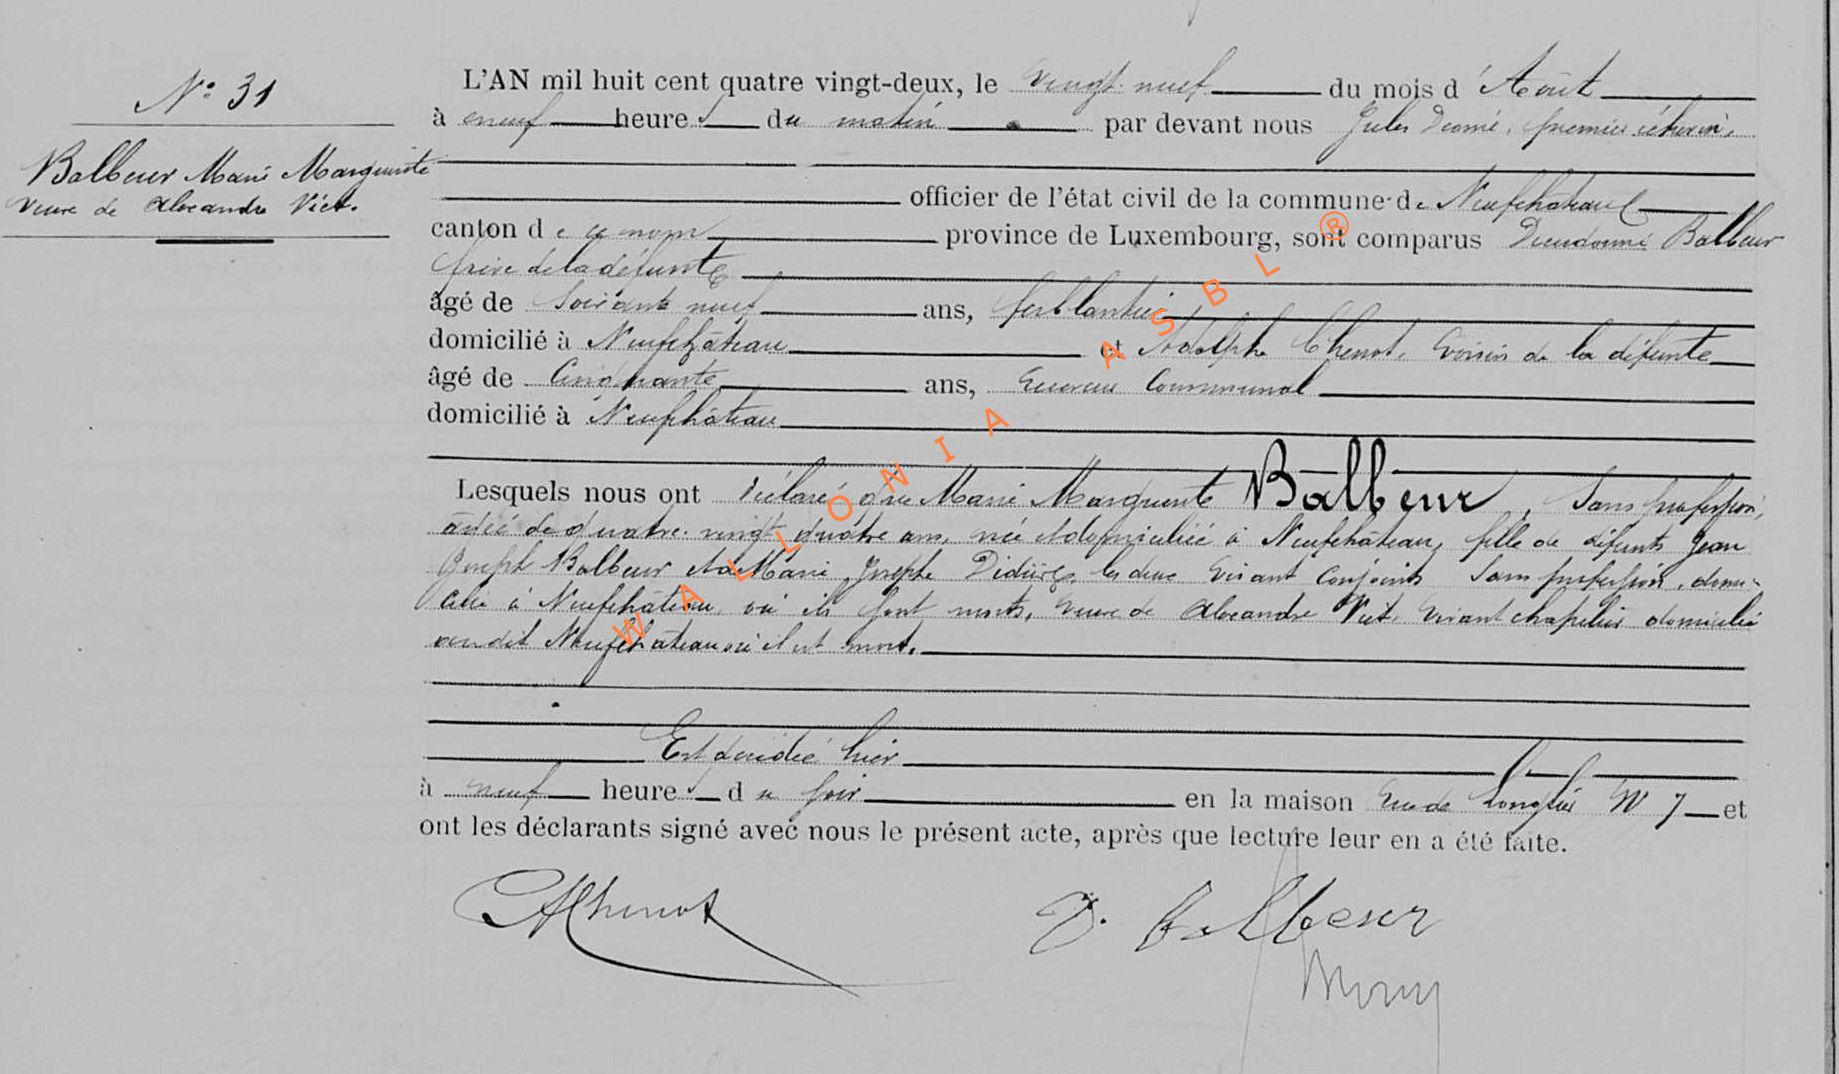 N° 31
Balbeur Marie Marguerite
veuve de Alexandre Viet.
L'AN mil huit cent quatre vingt-deux, le vingt-neuf du mois d'Août
à neuf heures du matin par devant nous Jules premier échevin,
officier de l'état civil de la commune de Neufchâteau
canton de ce nom province de Luxembourg, sont comparus Dieudonné Balbeur
frère de la défunte
âgé de Soixante neuf ans, ferblantier
domicilié à Neufchâteau et Adolphe Chenot, voisin de la défunte
âgé de Cinquante ans, Receveur Communal
domicilié à Neufchâteau
Lesquels nous ont déclaré que Marie Marguerite Balbeur, Sans profession,
âgée de quatre-vingt quatre ans, née et domiciliée à Neufchâteau, fille de défunts Jean
Joseph Balbeur et de Marie Josephe Didier, les deux vivant conjoints Sans profession, domi-
ciliés à Neufchâteau où ils sont morts, veuve de Alexandre Viet, vivant chapelier domicilié
au dit Neufchâteau où il est mort.
Est décédée hier
à neuf heures du soir en la maison rue de Longlier N° 7 et
ont les déclarants signé avec nous le présent acte, après que lecture leur en a été faite.
AChenot
D. Balbeur
WALLONIA ASBL ®